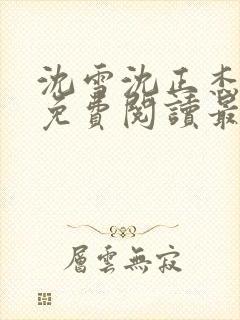 沈雪沈正杰
免費閱讀最
層雲無寂